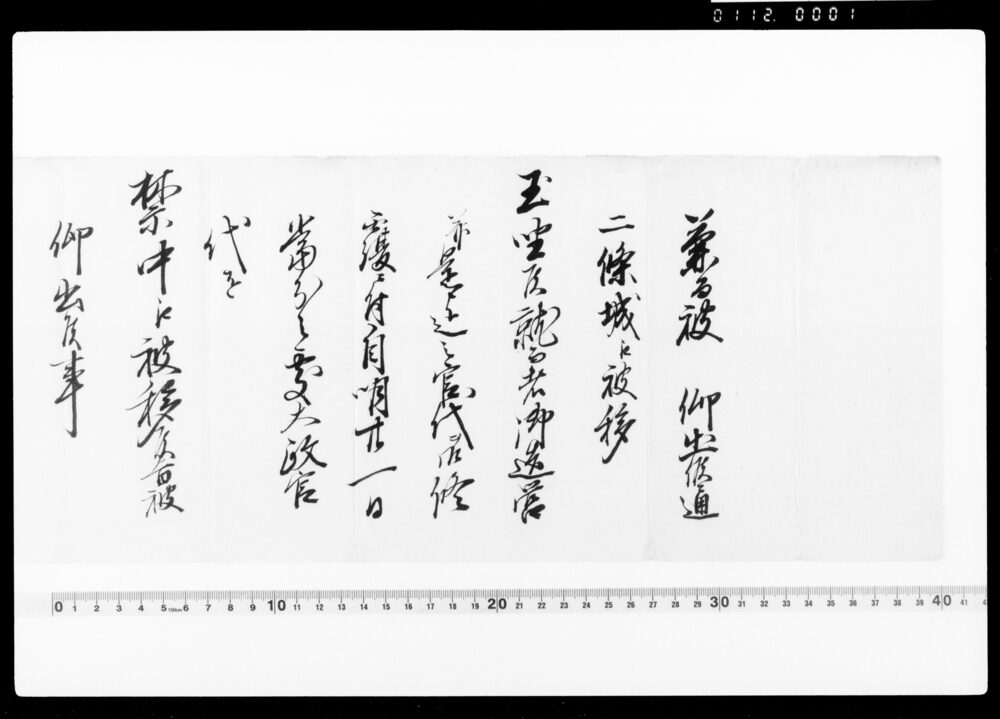 0112. 0001
兼而被　仰出候通
二條城江被移
玉坐候就而者御造営
并是迄之官代御修
覆ニ付自明廿一日
当分之處大政官
代を
禁中江被移候旨被
仰出候事
0 1 2 3 4 5 150cm 6 7 8 9 10 11 12 13 14 15 16 17 18 19 20 21 22 23 24 25 26 27 28 29 30 31 32 33 34 35 36 37 38 39 40 41